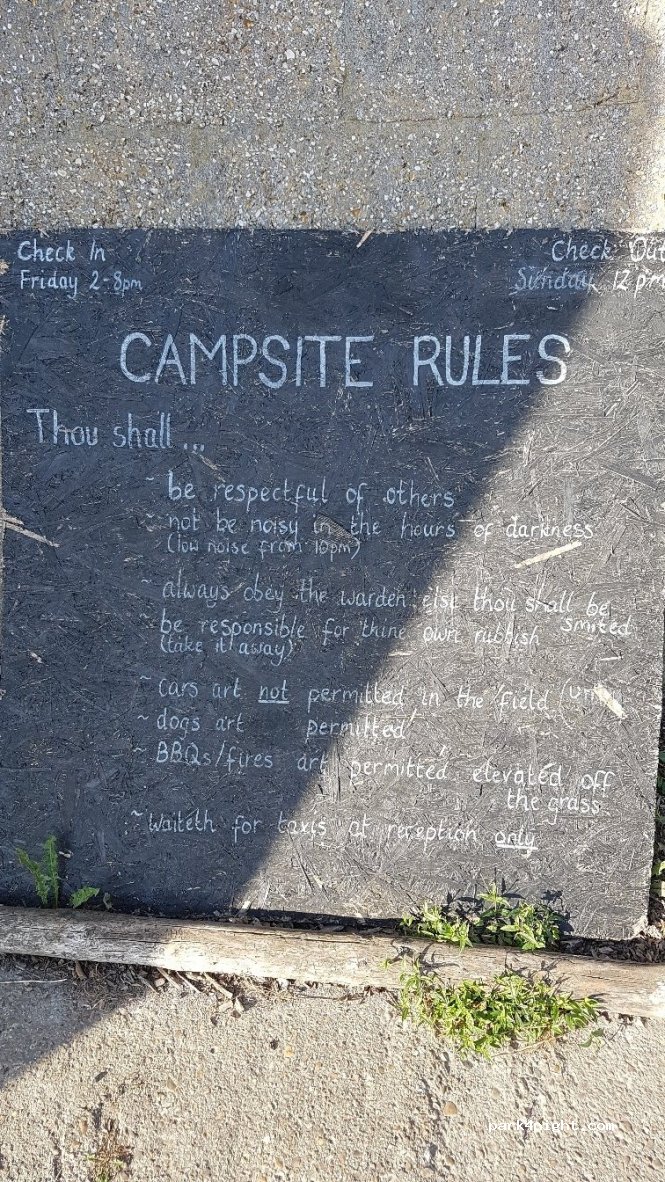 Check In
Check Out
Friday 2-8pm
Sunday 12pm
CAMPSITE RULES
Thou shall ...
~ be respectful of others
~ not be noisy in the hours of darkness
(low noise from 10pm)
~ always obey the warden else thou shall be
smited
~ be responsible for thine own rubbish
(take it away)
~ cars art not permitted in the field
~ dogs art permitted
~ BBQs/fires art permitted elevated off
the grass
~ Waiteth for taxis at reception only
park4night.com